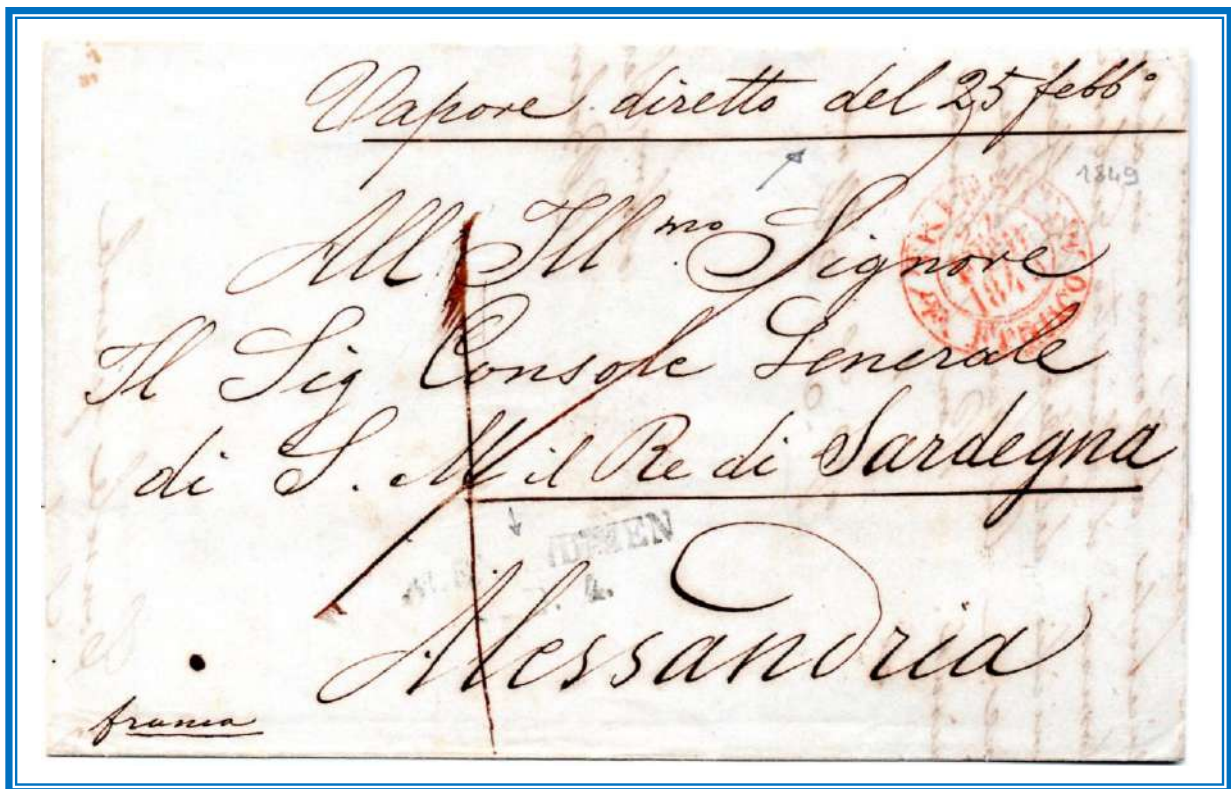 Vapore diretto del 25 febbº
1849
All Illmo Signore
Il Sig Console Generale
di S. M il Re di Sardegna
4.
Alessandria
franca